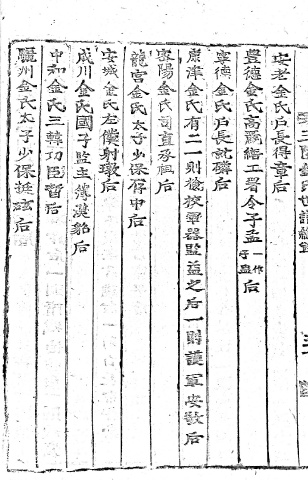 安老金氏戶長得章后
豊德金氏高麗繕工署令子孟一作子盎后
寧德金氏戶長就礪后
康津金氏有二一則檢校軍器監益之后一則護軍安敬后
密陽金氏司直承祖后
龍宮金氏太子少保存中后
安城金氏左僕射璥后
成川金氏國子監主簿漢豹后
中和金氏三韓功臣哲后
驪州金氏太子少保挺后